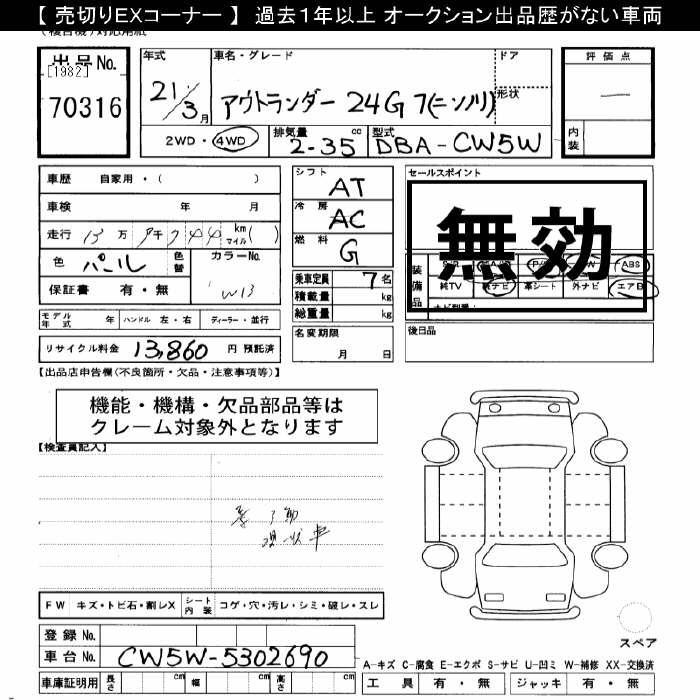 【 売切りEXコーナー 】 過去１年以上 オークション出品歴がない車両
出品No.
[1982]
70316
年式
21/3月
車名・グレード
アウトランダー 24G 7(ニンノリ)
ドア
形状
評価点
内装
2WD・4WD
排気量 2-35 cc
型式 DBA-CW5W
車歴 自家用・( )
車検 年 月
走行 万 km マイル( )
色 パール 色替
カラーNo. W13
保証書 有・無
モデル年式 年 ハンドル 左・右 ディーラー・並行
リサイクル料金 13,860 円 預託済
シフト AT
冷房 AC
燃料 G
乗車定員 7名
積載量 kg
総重量 kg
名変期限
月 日
セールスポイント
無効
装備品
ABS
純TV 純ナビ 革シート 外ナビ エアB
後日品
【出品店申告欄(不良箇所・欠品・注意事項等)】
機能・機構・欠品部品等は
クレーム対象外となります
【検査員記入】
現状車
FW キズ・トビ石・割レX シート内装 コゲ・穴・汚レ・シミ・破レ・スレ
登録No.
車台No. CW5W-5302690
車庫証明用 長さ cm 幅 cm 高さ cm
スペア
A-キズ C-腐食 E-エクボ S-サビ U-凹ミ W-補修 XX-交換済
工具 有・無 ジャッキ 有・無